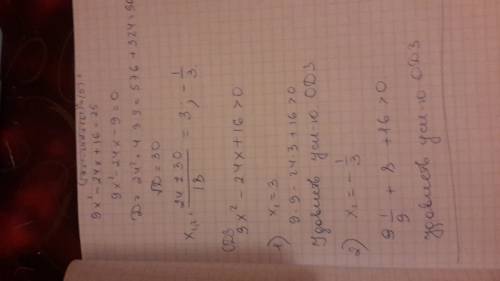 9x²-24x+16=25
9x²-24x-9=0
D = 24²+4·9·9=576+324=90
√D=30
x₁,₂ = (24±30)/18 = 3; -1/3
ОДЗ
9x²-24x+16>0
1) x₁=3
9·9-24·3+16>0
Удовлетв усл-ю ОДЗ
2) x₁=-1/3
9 1/9 + 8 + 16 > 0
удовлетв усл-ю ОДЗ